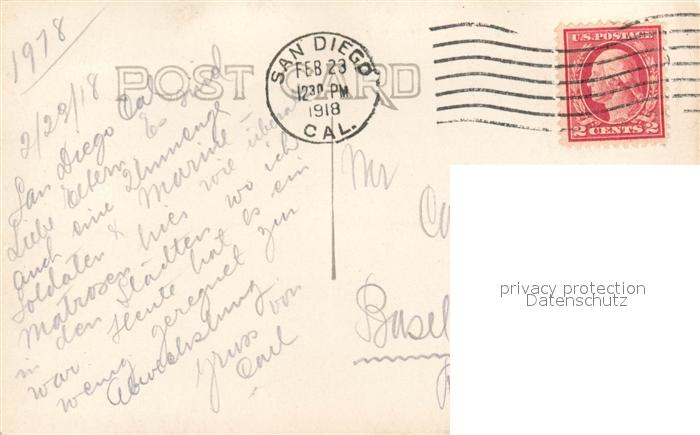 1918
POST CARD
SAN DIEGO
FEB 23
12 30 PM
1918
CAL.
U.S. POSTAGE
2 CENTS 2
2/23/18
San Diego Cal
Liebe Eltern Es sind
auch eine Unmenge
Soldaten & Marine
Matrosen hier wie überall
in den Städten wo ich
war. Heute hat es ein
wenig geregnet zur
Abwechslung
Gruss von
Carl
Mr
Basel
privacy protection
Datenschutz